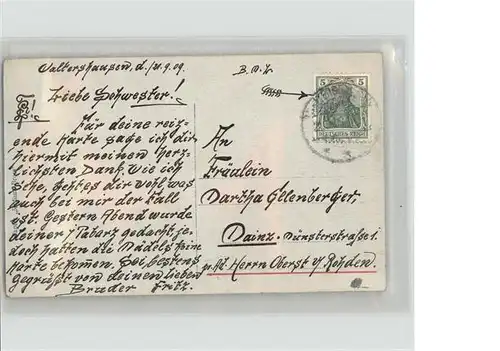 Waltershausen, d. 11.9.09.
B. M. Z.
Liebe Schwester!
Für deine reiz-
ende Karte sage ich dir
hiermit meinen herz-
lichsten Dank. Wie ich
sehe, geht es dir wohl was
auch bei mir der Fall
ist. Gestern Abend wurde
deiner gedacht, je-
doch hatten die Mädels keine
Karte bekommen. Sei bestens
gegrüßt von deinem lieben
Bruder Fritz.
5 5
DEUTSCHES REICH
An
Fräulein
Dartha Ellenberger,
Mainz. Münsterstraße 1.
Herrn Oberst v. Rohden.